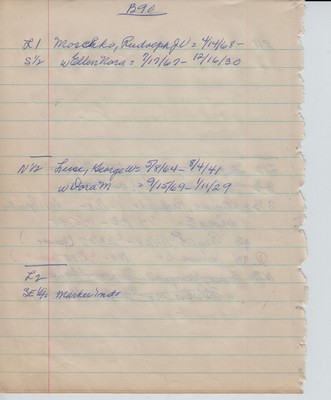 B90
L1 Moschko, Rudolph J V = 4/14/68-
S 1/2 w Ellen Nora = 7/17/67- 12/16/30
N 1/2 Luse, George W = 5/8/64- 8/4/41
w Dora M = 9/15/69- 1/11/29
L2
SE 1/4